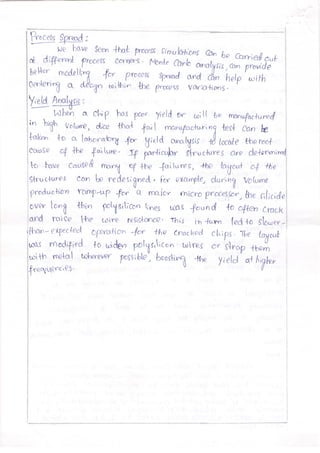 Process Spread:
we have seen that process simulations can be carried out
at different process corners. Monte Carlo analysis can provide
better modelling for process spread and can help with
centering a design within the process variations.
Yield Analysis:
When a chip has poor yield or will be manufactured
in high volume, dice that fail manufacturing test can be
taken to a laboratory for yield analysis to locate the root
cause of the failure. If particular structures are determined
to have caused many of the failures, the layout of the
structures can be redesigned. For example, during volume
production ramp-up for a major micro processor, the silicide
over long thin polysilicon lines was found to often crack
and raise the wire resistance. This in turn led to slower-
than-expected operation for the cracked chips. The layout
was modified to widen polysilicon wires or strap them
with metal wherever possible, boosting the yield at higher
frequencies.